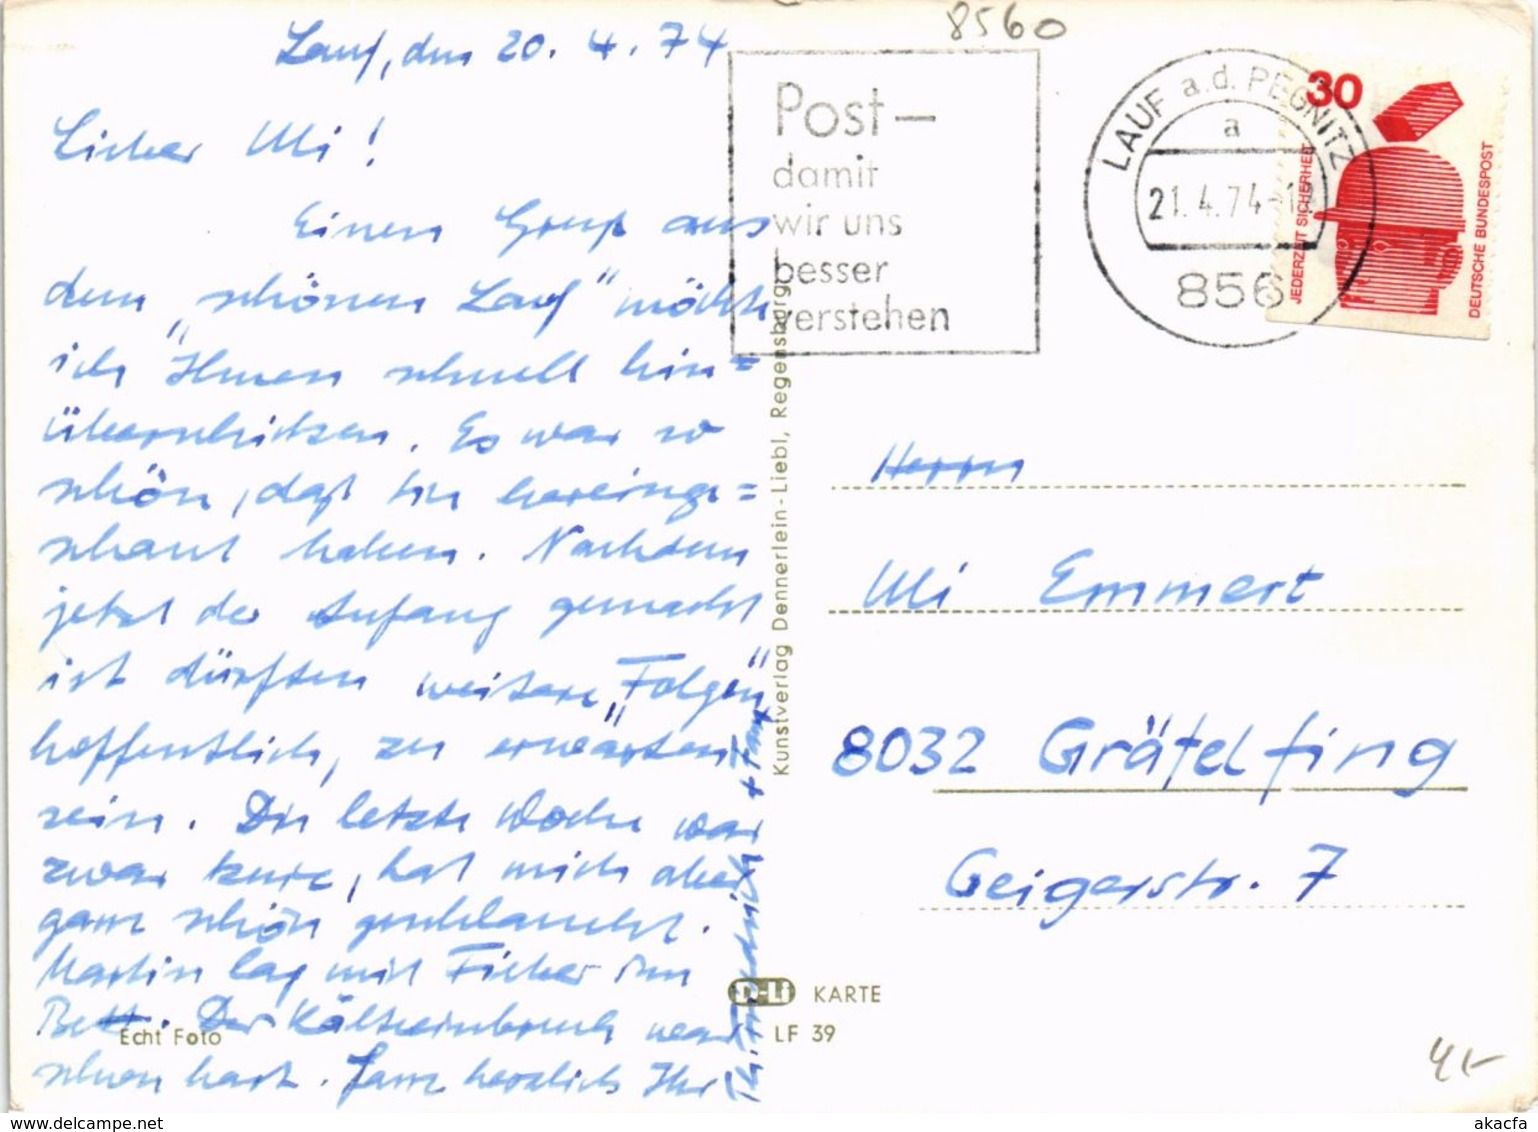 8560
Lauf, den 20. 4. 74
Lieber Uli!
Einen Gruß aus
dem „schönen Lauf" möchte
ich Ihnen schnell hin=
überschicken. Es war so
schön, daß Sie hereinge=
schaut haben. Nachdem
jetzt der Anfang gemacht
ist dürften weitere „Folgen"
hoffentlich, zu erwarten
sein. Die letzte Woche war
zwar kurz, hat mich aber
ganz schön geschlaucht.
Martin lag mit Fieber im
Bett. Der Kälteeinbruch war
schon hart. Ganz herzlich Ihr
Friedrich + Fam
Post—
damit
wir uns
besser
verstehen
LAUF a.d. PEGNITZ
a
21.4.74
856
30
JEDERZEIT SICHERHEIT
DEUTSCHE BUNDESPOST
Herrn
Uli Emmert
8032 Gräfelfing
Geigerstr. 7
Kunstverlag Dennerlein-Liebl, Regensburg
D-Li KARTE
LF 39
Echt Foto
4,-
www.delcampe.net
akacfa